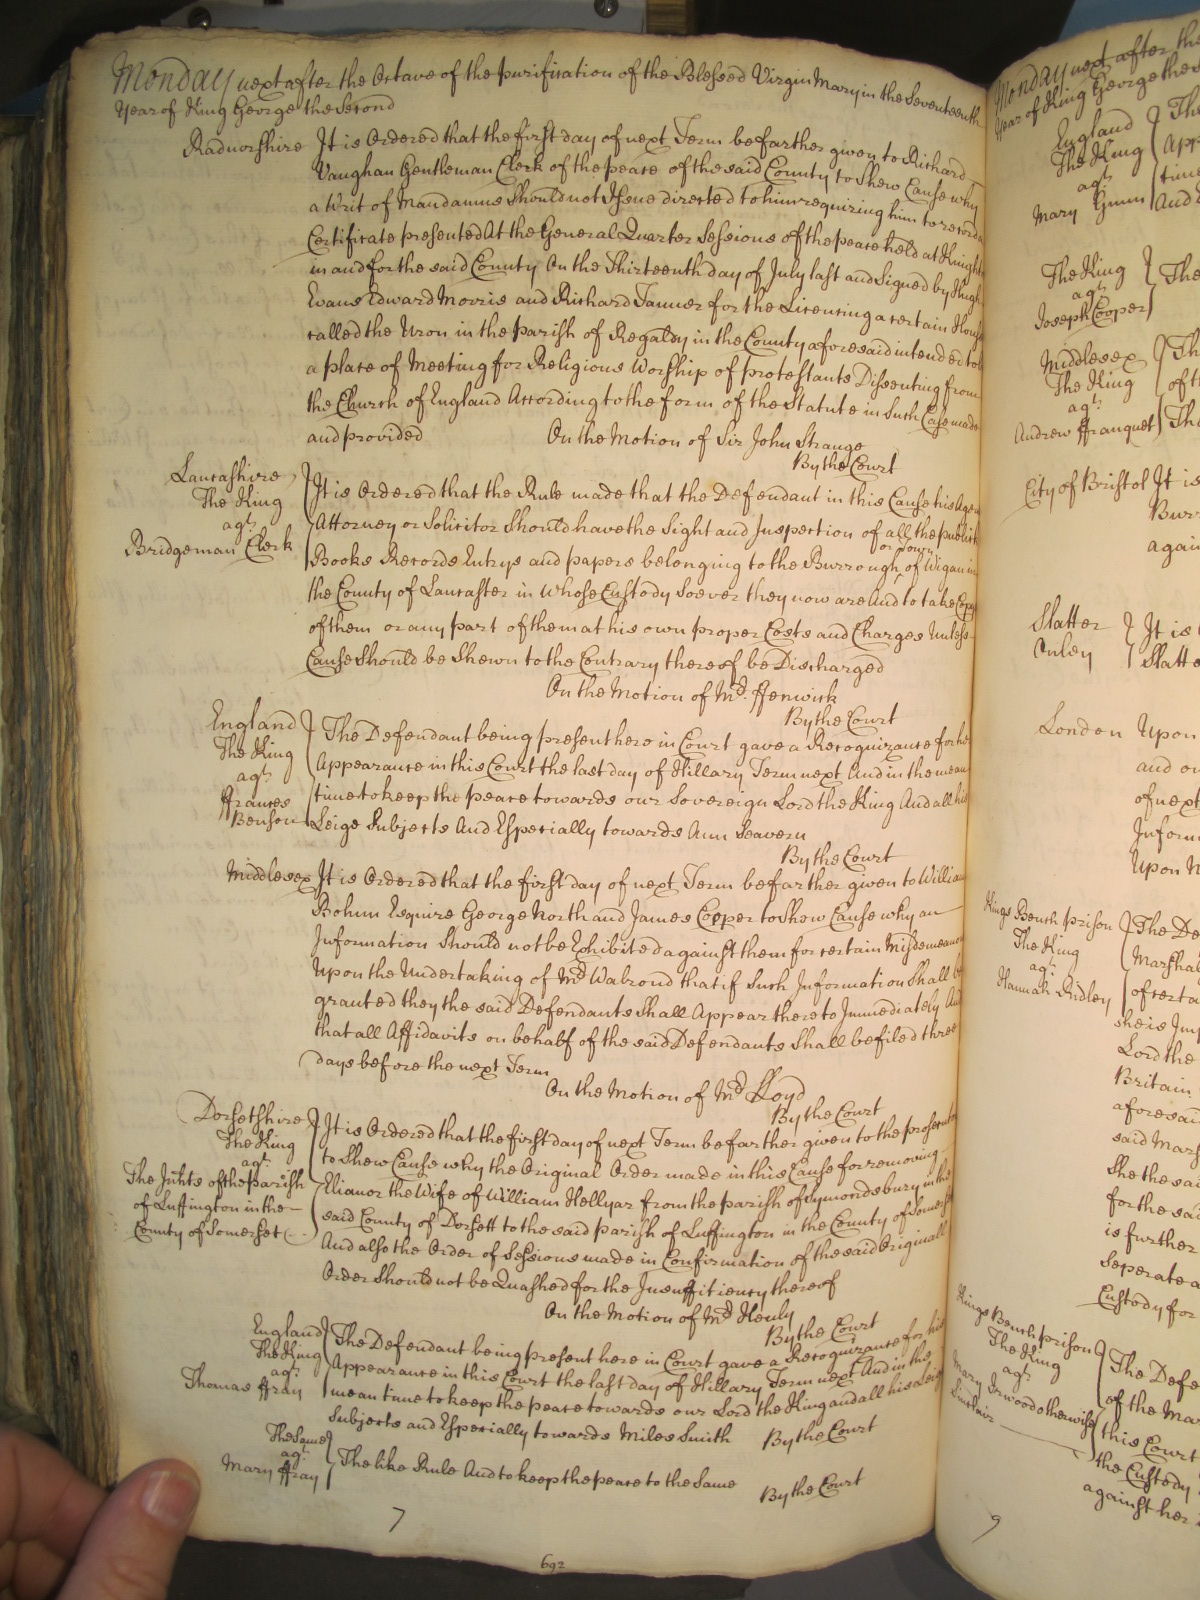 Monday next after the Octave of the purification of the Blessed Virgin Mary in the Seventeenth
Year of King George the Second
Radnorshire It is Ordered that the first day of next Term be farther given to Richard
Vaughan Gentleman Clerk of the peace of the said County to Shew Cause why
a Writ of Mandamus Should not Issue directed to him requiring him to record a
Certificate presented At the General Quarter Sessions of the peace held at Knight
in and for the said County On the Thirteenth day of July last and Signed by Hugh
Evans Edward Morris and Richard Tanner for the Licensing a certain House
called the Uron in the parish of Regaldy in the County aforesaid intended to b
a place of Meeting for Religious Worship of protestants Dissenting from
the Church of England According to the form of the Statute in Such Case made
and provided On the Motion of Sir John Strange
By the Court
Lancashire
The King
agt
Bridgeman Clerk
It is Ordered that the Rule made that the Defendant in this Cause his Agen
Attorney or Solicitor Should have the Sight and Inspection of all the publick
Books Records Entrys and papers belonging to the Burrough or Town of Wigan in
the County of Lancaster in Whose Custody Soever they now are And to take Cop
of them or any part of them at his own proper Costs and Charges Unless
Cause Should be Shewn to the Contrary thereof be Discharged
On the Motion of Mr. ffenwick
By the Court
England
The King
agt
ffrances
Benson
The Defendant being present here in Court gave a Recognizance for he
Appearance in this Court the last day of Hillary Term next And in the mean
time to keep the peace towards our Sovereign Lord the King And all his
Leige Subjects And Especially towards Ann Seavern
By the Court
Middlesex It is Ordered that the first day of next Term be farther given to William
Bohun Esquire George North and James Cooper to Shew Cause why an
Information Should not be Exhibited against them for certain Misdemeanor
Upon the Undertaking of Mr Walrond that if Such Information Shall b
granted they the said Defendants Shall Appear thereto Immediately And
that all Affidavits on behalf of the said Defendants Shall be filed three
days before the next Term
On the Motion of Mr Lloyd
By the Court
Dorsetshire
The King
agt
The Inhts of the parish
of Luffington in the
County of Somerset
It is Ordered that the first day of next Term be farther given to the prosecuto
to Shew Cause why the Original Order made in this Cause for removing
Elianor the Wife of William Hellyar from the parish of Symondsbury in the
said County of Dorsett to the said parish of Luffington in the County of Somerset
And also the Order of Sessions made in Confirmation of the said Originall
Order Should not be Quashed for the Insufficiency thereof
On the Motion of Mr Henly
By the Court
England
The King
agt
Thomas ffray
The Defendant being present here in Court gave a Recognizance for his
Appearance in this Court the last day of Hillary Term next And in the
mean time to keep the peace towards our Lord the King and all his Leig
Subjects and Especially towards Miles Smith By the Court
The Same
agt
Mary ffray
The like Rule And to keep the peace to the Same
By the Court
7
692
Monday next after the
Year of King George the S
England
The King
agt
Mary Gunn
The
App
time
And
The King
agt
Joseph Cooper
The
Middlesex
The King
agt
Andrew ffranquet
Th
of th
Tho
City of Bristol It is
Burr
again
Slatter
Inley
It is
Slatte
London Upon
and on
of next
Inform
Upon
Kings Bench prison
The King
agt
Hannah Ridley
The De
Marshal
of certa
she is Imp
Lord the
Britain
aforesaid
said Mars
She the said
for the said
is further
Seperate a
Custody for
Kings Bench prison
The King
agt
Mary Irwood otherwise
Sinclair
The Defe
of the Mar
this Court
the Custody
against her
9